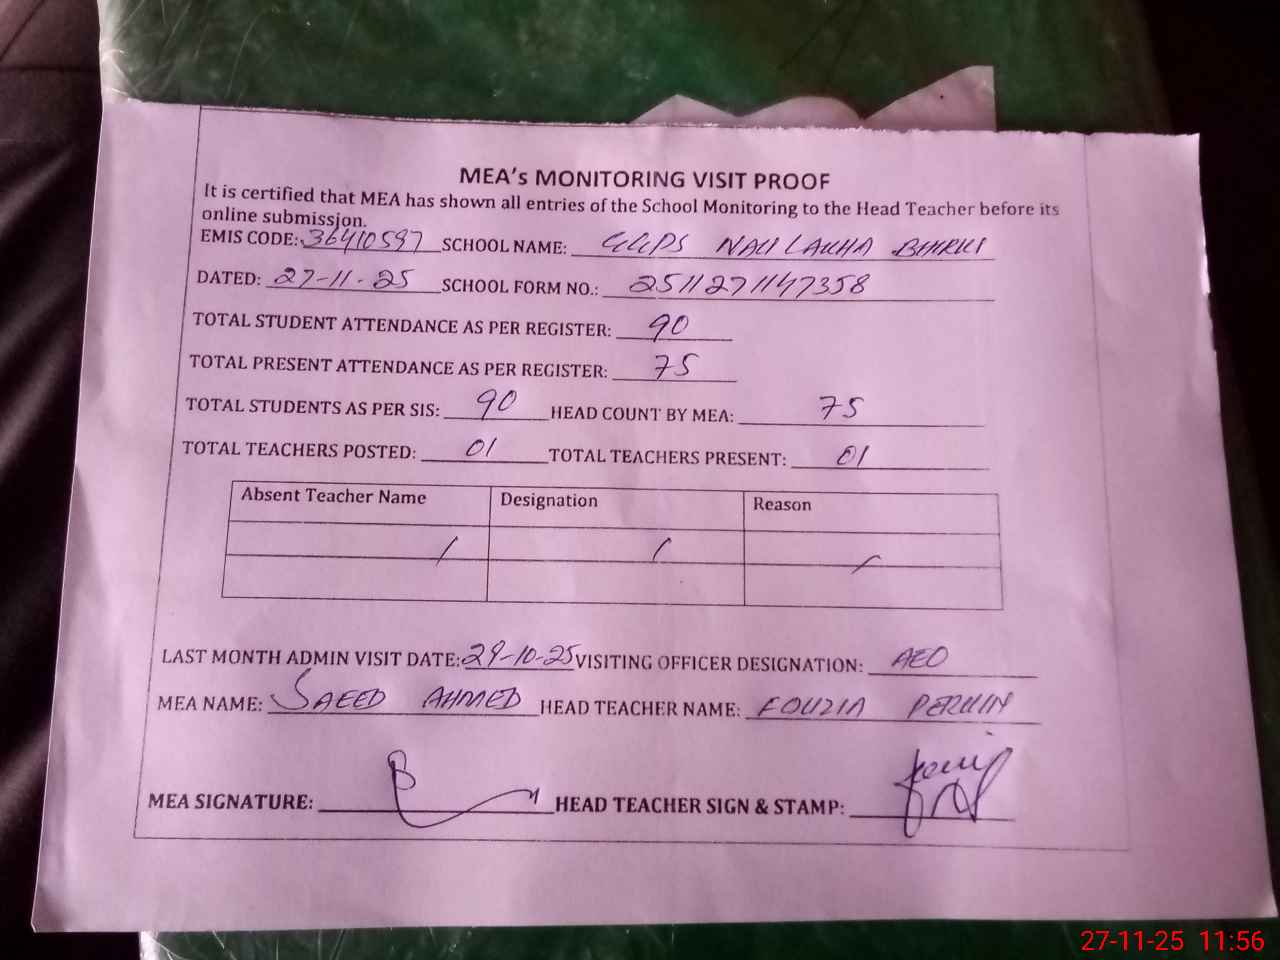 MEA's MONITORING VISIT PROOF
It is certified that MEA has shown all entries of the School Monitoring to the Head Teacher before its
online submission.
EMIS CODE: 36410597 SCHOOL NAME: GGPS NAU LAKHA BHIRKI
DATED: 27-11-25 SCHOOL FORM NO.: 2511271147358
TOTAL STUDENT ATTENDANCE AS PER REGISTER: 90
TOTAL PRESENT ATTENDANCE AS PER REGISTER: 75
TOTAL STUDENTS AS PER SIS: 90 HEAD COUNT BY MEA: 75
TOTAL TEACHERS POSTED: 01 TOTAL TEACHERS PRESENT: 01
Absent Teacher Name Designation Reason
/ / /
LAST MONTH ADMIN VISIT DATE: 29-10-25 VISITING OFFICER DESIGNATION: AEO
MEA NAME: SAEED AHMED HEAD TEACHER NAME: FOUZIA PERVIN
MEA SIGNATURE: HEAD TEACHER SIGN & STAMP:
27-11-25 11:56